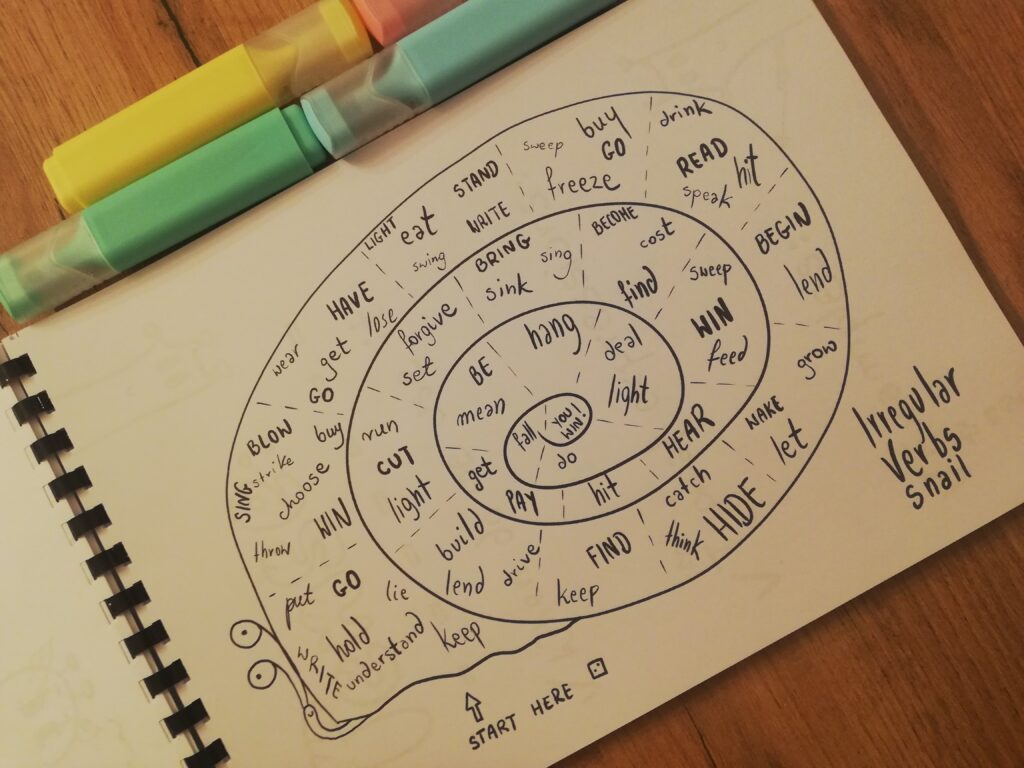 sweep
buy
GO
freeze
drink
READ
hit
speak
STAND
eat
WRITE
swing
LIGHT
HAVE
lose
get
wear
GO
BLOW
buy
strike
choose
SING
WIN
throw
put
GO
lie
hold
WRITE
understand
keep
BEGIN
lend
grow
let
HIDE
think
catch
FIND
keep
drive
lend
build
light
CUT
run
set
forgive
BRING
sing
sink
BECOME
cost
find
sweep
WIN
feed
WAKE
HEAR
hit
PAY
get
mean
BE
hang
deal
light
do
fall
YOU
WIN!
START HERE
Irregular
Verbs
snail